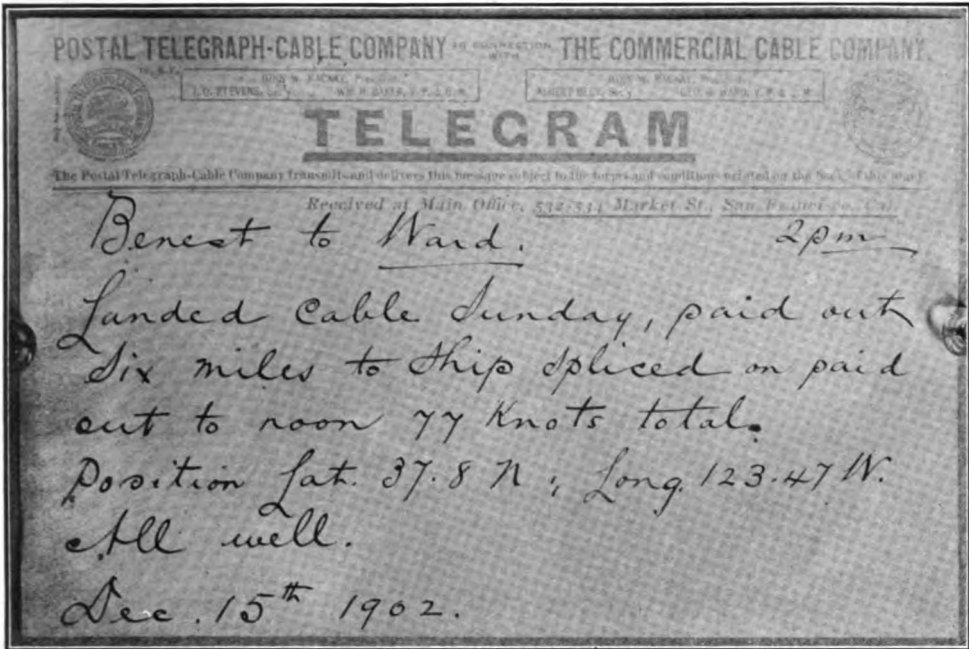 POSTAL TELEGRAPH-CABLE COMPANY IN CONNECTION WITH THE COMMERCIAL CABLE COMPANY.
TELEGRAM
The Postal Telegraph-Cable Company transmits and delivers this message subject to the terms and conditions printed on the back of this
Received at Main Office, 532-534 Market St., San Francisco, Cal.
Benest to Ward. 2pm
Landed cable Sunday, paid out
Six miles to ship spliced on paid
out to noon 77 Knots total.
Position Lat. 37.8 N; Long. 123.47 W.
All well.
Dec. 15th 1902.